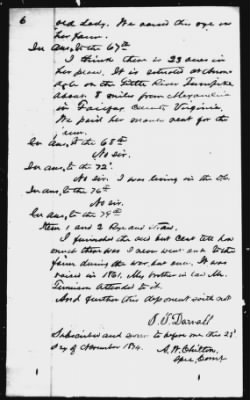 6
old lady. We raised the rye on
her farm.
In Ans, to the 67th
I think there is 23 acres in
her piece. It is situated at Annan-
dale on the Little River Turnpike
about 8 miles from Alexandria
in Fairfax County Virginia.
We paid her money rent for the
farm.
In Ans, to the 68th
No sir.
In Ans, to the 72d
No sir. I was living in the
In Ans, to the 76th
No sir.
In Ans, to the 79th
Item 1 and 2 Rye and Straw.
I furnished the seed but cant tell how
much there was I never went out to the
farm during the war, but once. It was
raised in 1861. My brother in law Mr.
attended to it.
And further this deponent saith not
Subscribed and sworn to before me this 23d
Day of November 1874.
A. W. Chilton,
Spec. Comr